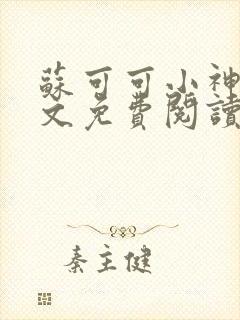 蘇可可小神
文免費閱讀
秦主健